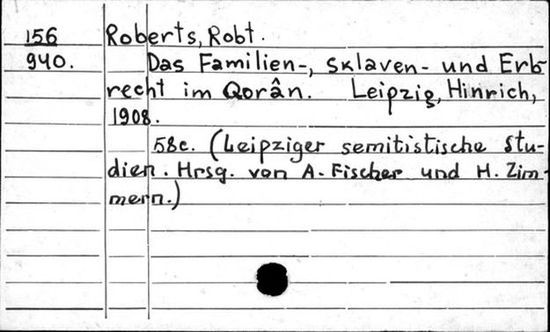 156 Roberts, Robt.
940. Das Familien-, Sklaven- und Erb-
recht im Qorân. Leipzig, Hinrich,
1908.
58c. (Leipziger semitistische Stu-
dien. Hrsg. von A. Fischer und H. Zim-
mern.)